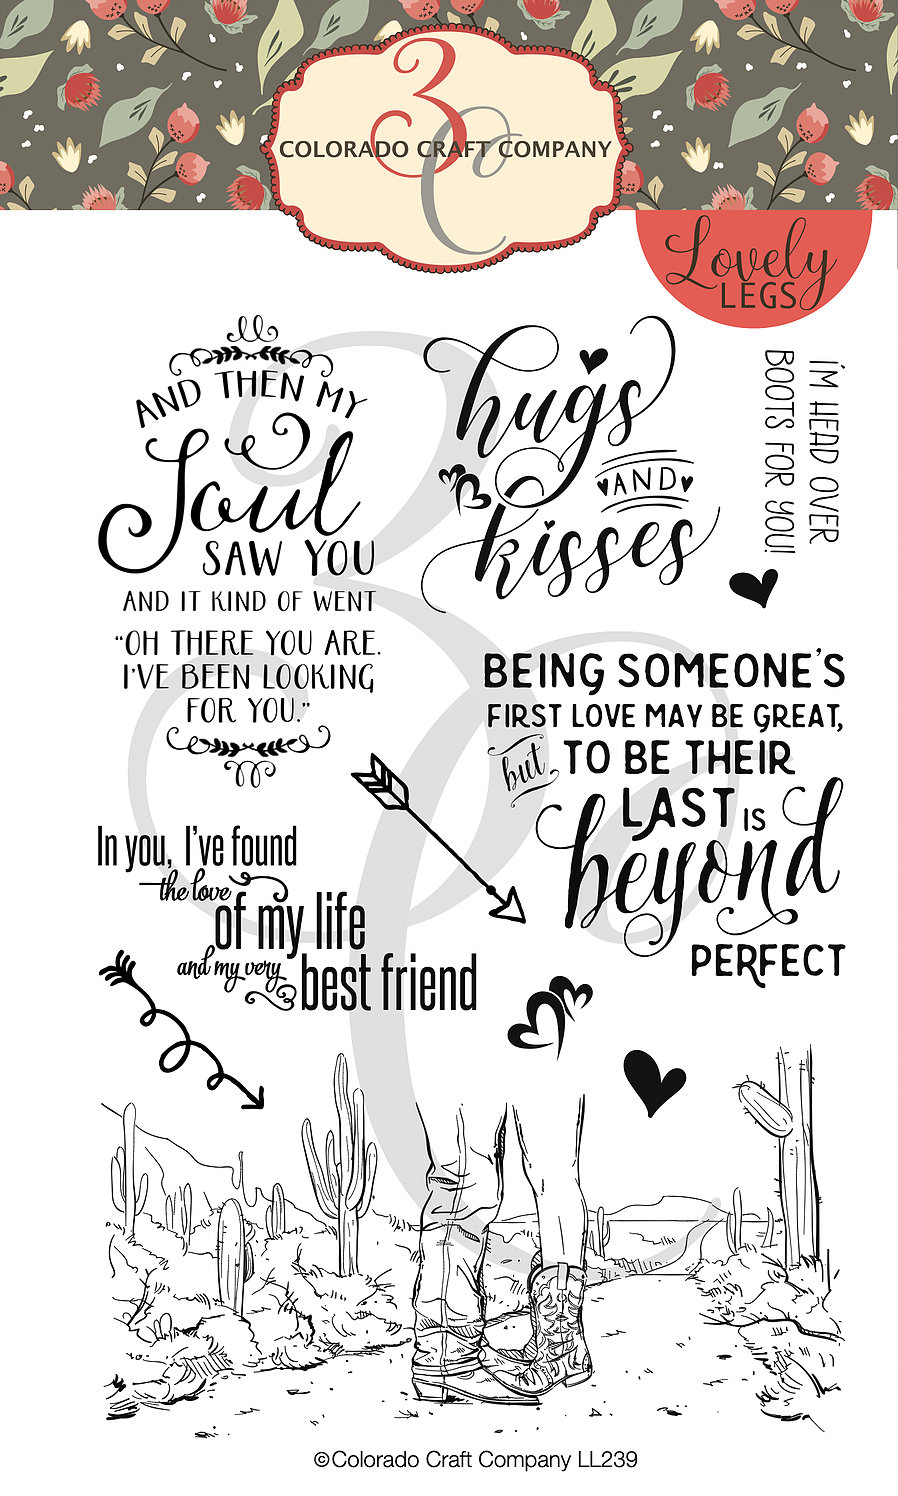 3C
COLORADO CRAFT COMPANY
Lovely
LEGS
AND THEN MY
Soul
SAW YOU
AND IT KIND OF WENT
“OH THERE YOU ARE.
I'VE BEEN LOOKING
FOR YOU.”
hugs
AND
kisses
I'M HEAD OVER
BOOTS FOR YOU!
BEING SOMEONE'S
FIRST LOVE MAY BE GREAT,
but TO BE THEIR
LAST IS
beyond
PERFECT
In you, I've found
the love
of my life
and my very
best friend
3C
©Colorado Craft Company LL239